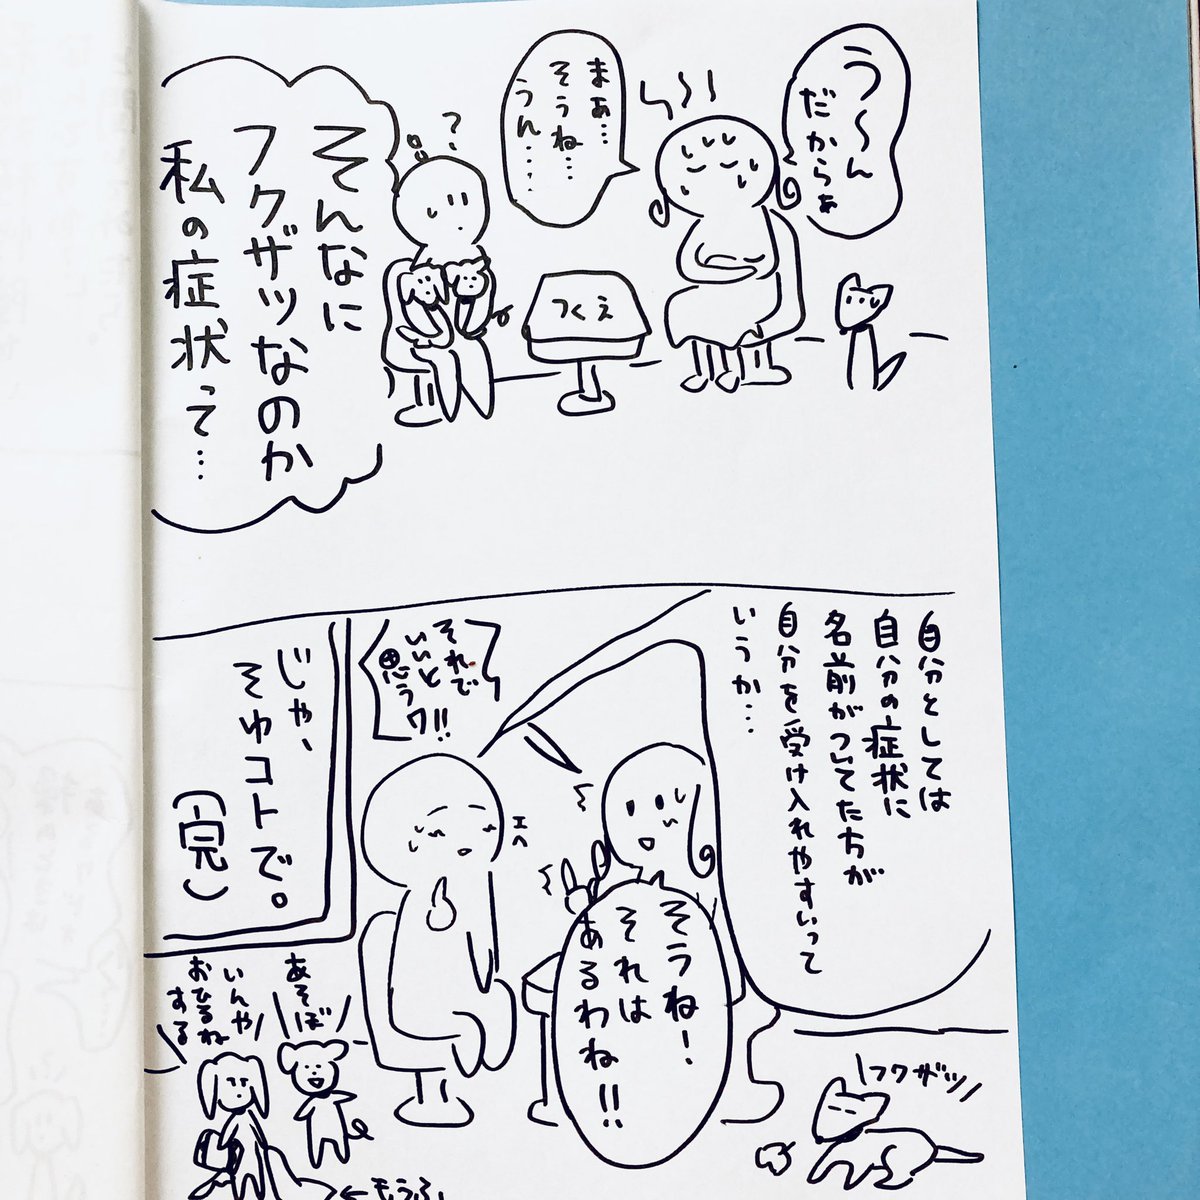 う〜ん
だからぁ
まぁ…
そうね…
うん……
つくえ
そんなに
フクザツなのか
私の症状って…
自分としては
自分の症状に
名前がついてた方が
自分を受け入れやすいって
いうか…
そうね!
それは
あるわね!!
それで
いいと
思うワ!!
エヘ
じゃ、
そゆコトで。
(完)
フクザツ
あそぼ
いんや
おひるね
する
←もうふ